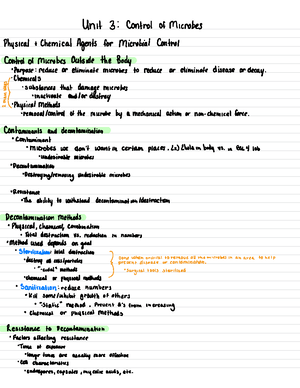 Unit 3: Control of Microbes
Physical + Chemical Agents for Microbial Control
Control of Microbes Outside the Body
•Purpose: reduce or eliminate microbes to reduce or eliminate disease or decay.
•Chemicals
•substances that damage microbes
•inactivate and/or destroy
•Physical Methods
•removal/control of the microbe by a mechanical action or non-chemical force.
Contaminants and decontamination
•Contaminant
•Microbes we don't want in certain places. E. coli in body vs. in lab
•Undesirable microbes
•Decontamination
•Destroying/removing undesirable microbes
•Resistance
•The ability to withstand decontamination/destruction
Decontamination Methods
•Physical, chemical, combination
•Total destruction vs. reduction in numbers
•Method used depends on goal
•Sterilization: total destruction
•destroy all cells/particles
•"-cidal" methods
•chemical or physical methods
Done when critical to remove all the microbes in an area to
prevent disease or contamination.
•Surgical tools sterilized
•Sanitization: reduce numbers
•Kill some/inhibit growth of others
•"Static" method. Prevent #'s from increasing
•Chemical or physical methods
Resistance to Decontamination
•Factors affecting resistance
•Time of exposure
•longer times are usually more effective
•Cell characteristics
•endospores, capsules, mycolic acids, etc.